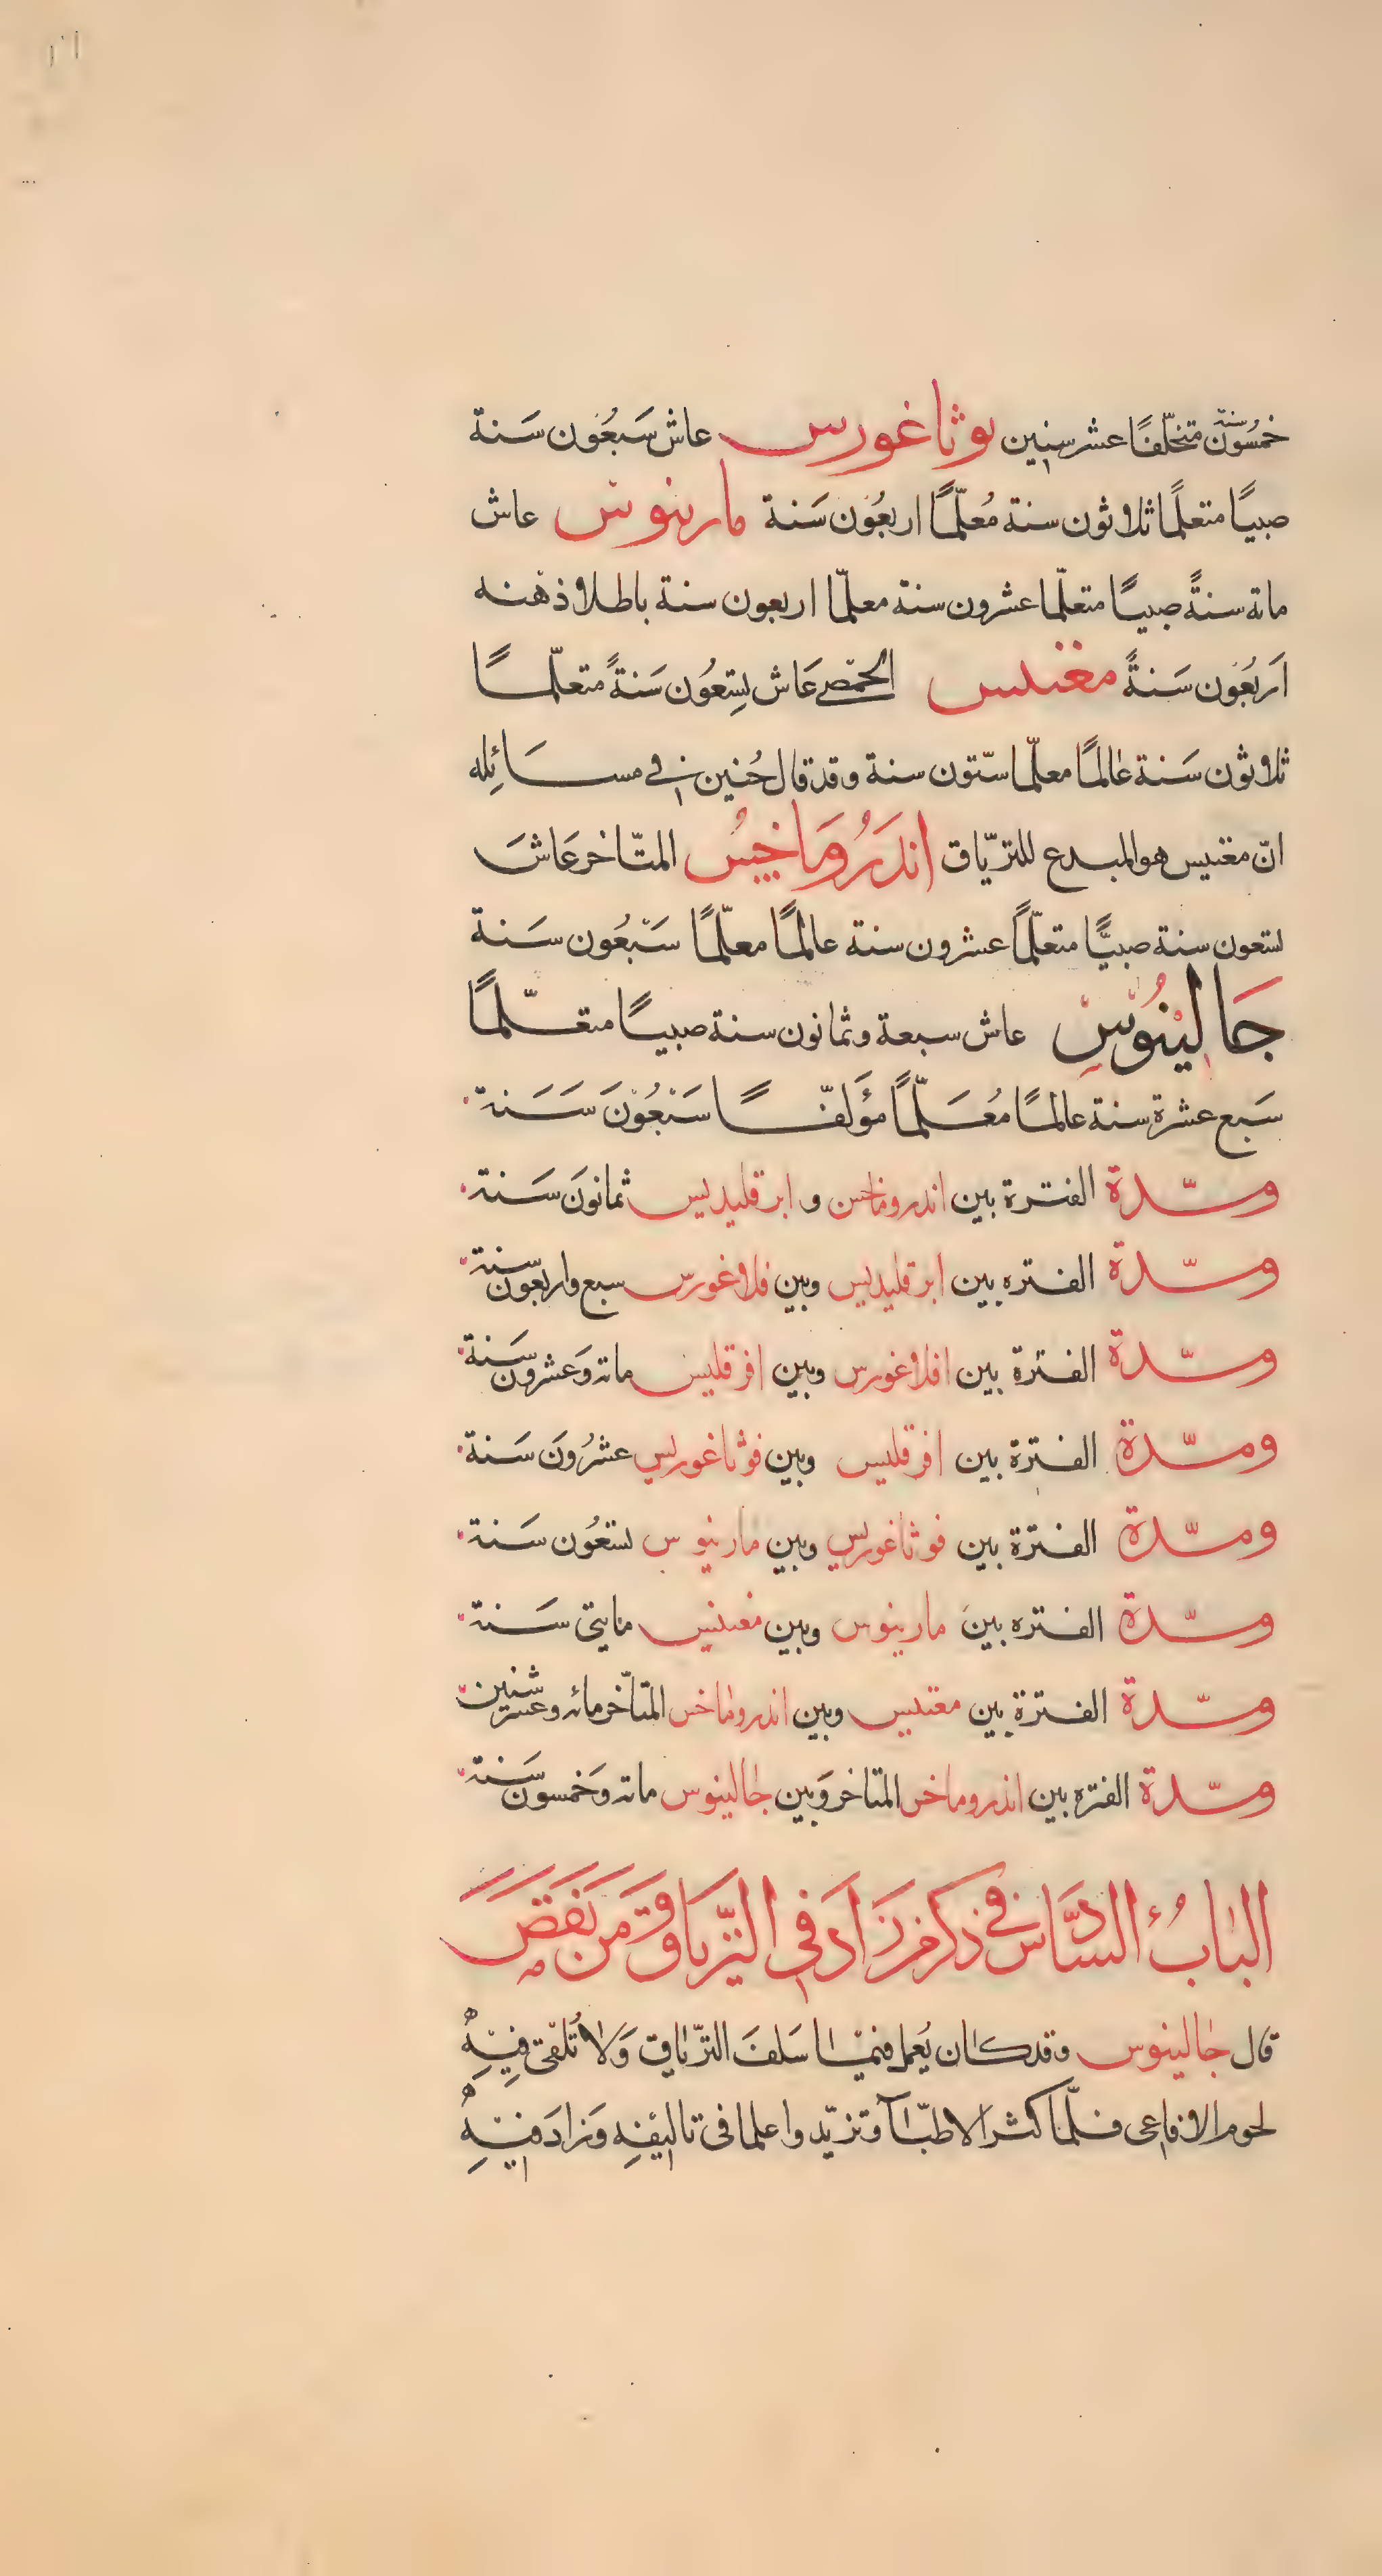 خمسُون سنة متخلّفًا عشر سنين يوثاغورس عاش سَبعُون سَنة
صبيًا متعلمًا ثلاثون سنة مُعلّمًا اربعُون سَنة مارينوس عاش
ماتة سنةً صبيًا متعلّما عشرون سنة معلّما اربعون سنة باطلا ذهنه
اَربعُون سَنةً مغنيس الحمّصي عَاش تِسعُون سَنةً متعلّمًا
ثلاثون سَنة عالمًا معلّما ستّون سنة وقد قال حُنين في مسائِله
انّ مغنيس هو المبدع للترّياق اندَرُومَاخِيسُ المتّاخر عَاشَ
تسعون سنة صبيًّا متعلّمًا عشرون سنة عالمًا معلّمًا سَبْعُون سَنة
جَالِينُوس عاش سبعة وثمانون سنة صبيًا متعَّلمًا
سَبع عشرة سنة عالمًا مُعَلّمًا مؤَلفًّا سَبْعُوْنَ سَنَة
ومدّة الفترة بين اندروماخس و ابرقليديس ثمانونَ سَنة
ومدّة الفتره بين ابرقليديس وبين فلاغورس سبع واربعون سنة
ومدّة الفترة بين افلاغورس وبين افرقليس ماتة وَعشرون سَنة
ومدّة الفترة بين افرقليس وبين فوثاغوريس عشرُونَ سَنة
ومدّة الفترة بين فوثاغوريس وبين مارنيوس تسعُون سَنة
ومدّة الفتره بينَ مارينوس وبين مغنيس مايتى سَنة
ومدّة الفترة بين مغنيس وبين اندروماخس المتاّخر مائه وعشر سنين
ومدّة الفتره بين اندروماخس المتاخر وَبين جالينوس ماتة وَخمسون سَنة
البابُ السَّادس في ذكر من زَادَ في التّرياق وَمَن نَقَصَ مِنه
قال جالينوس وقد كان يُعمل فيمْا سَلفَ الترّياق وَلا تُلقى فِيْهِ
لحوم الافاعى فلّما كثر الاطبّآ وتزيّدوا علما فى تاليْفهِ وَزادَ فيْهِ